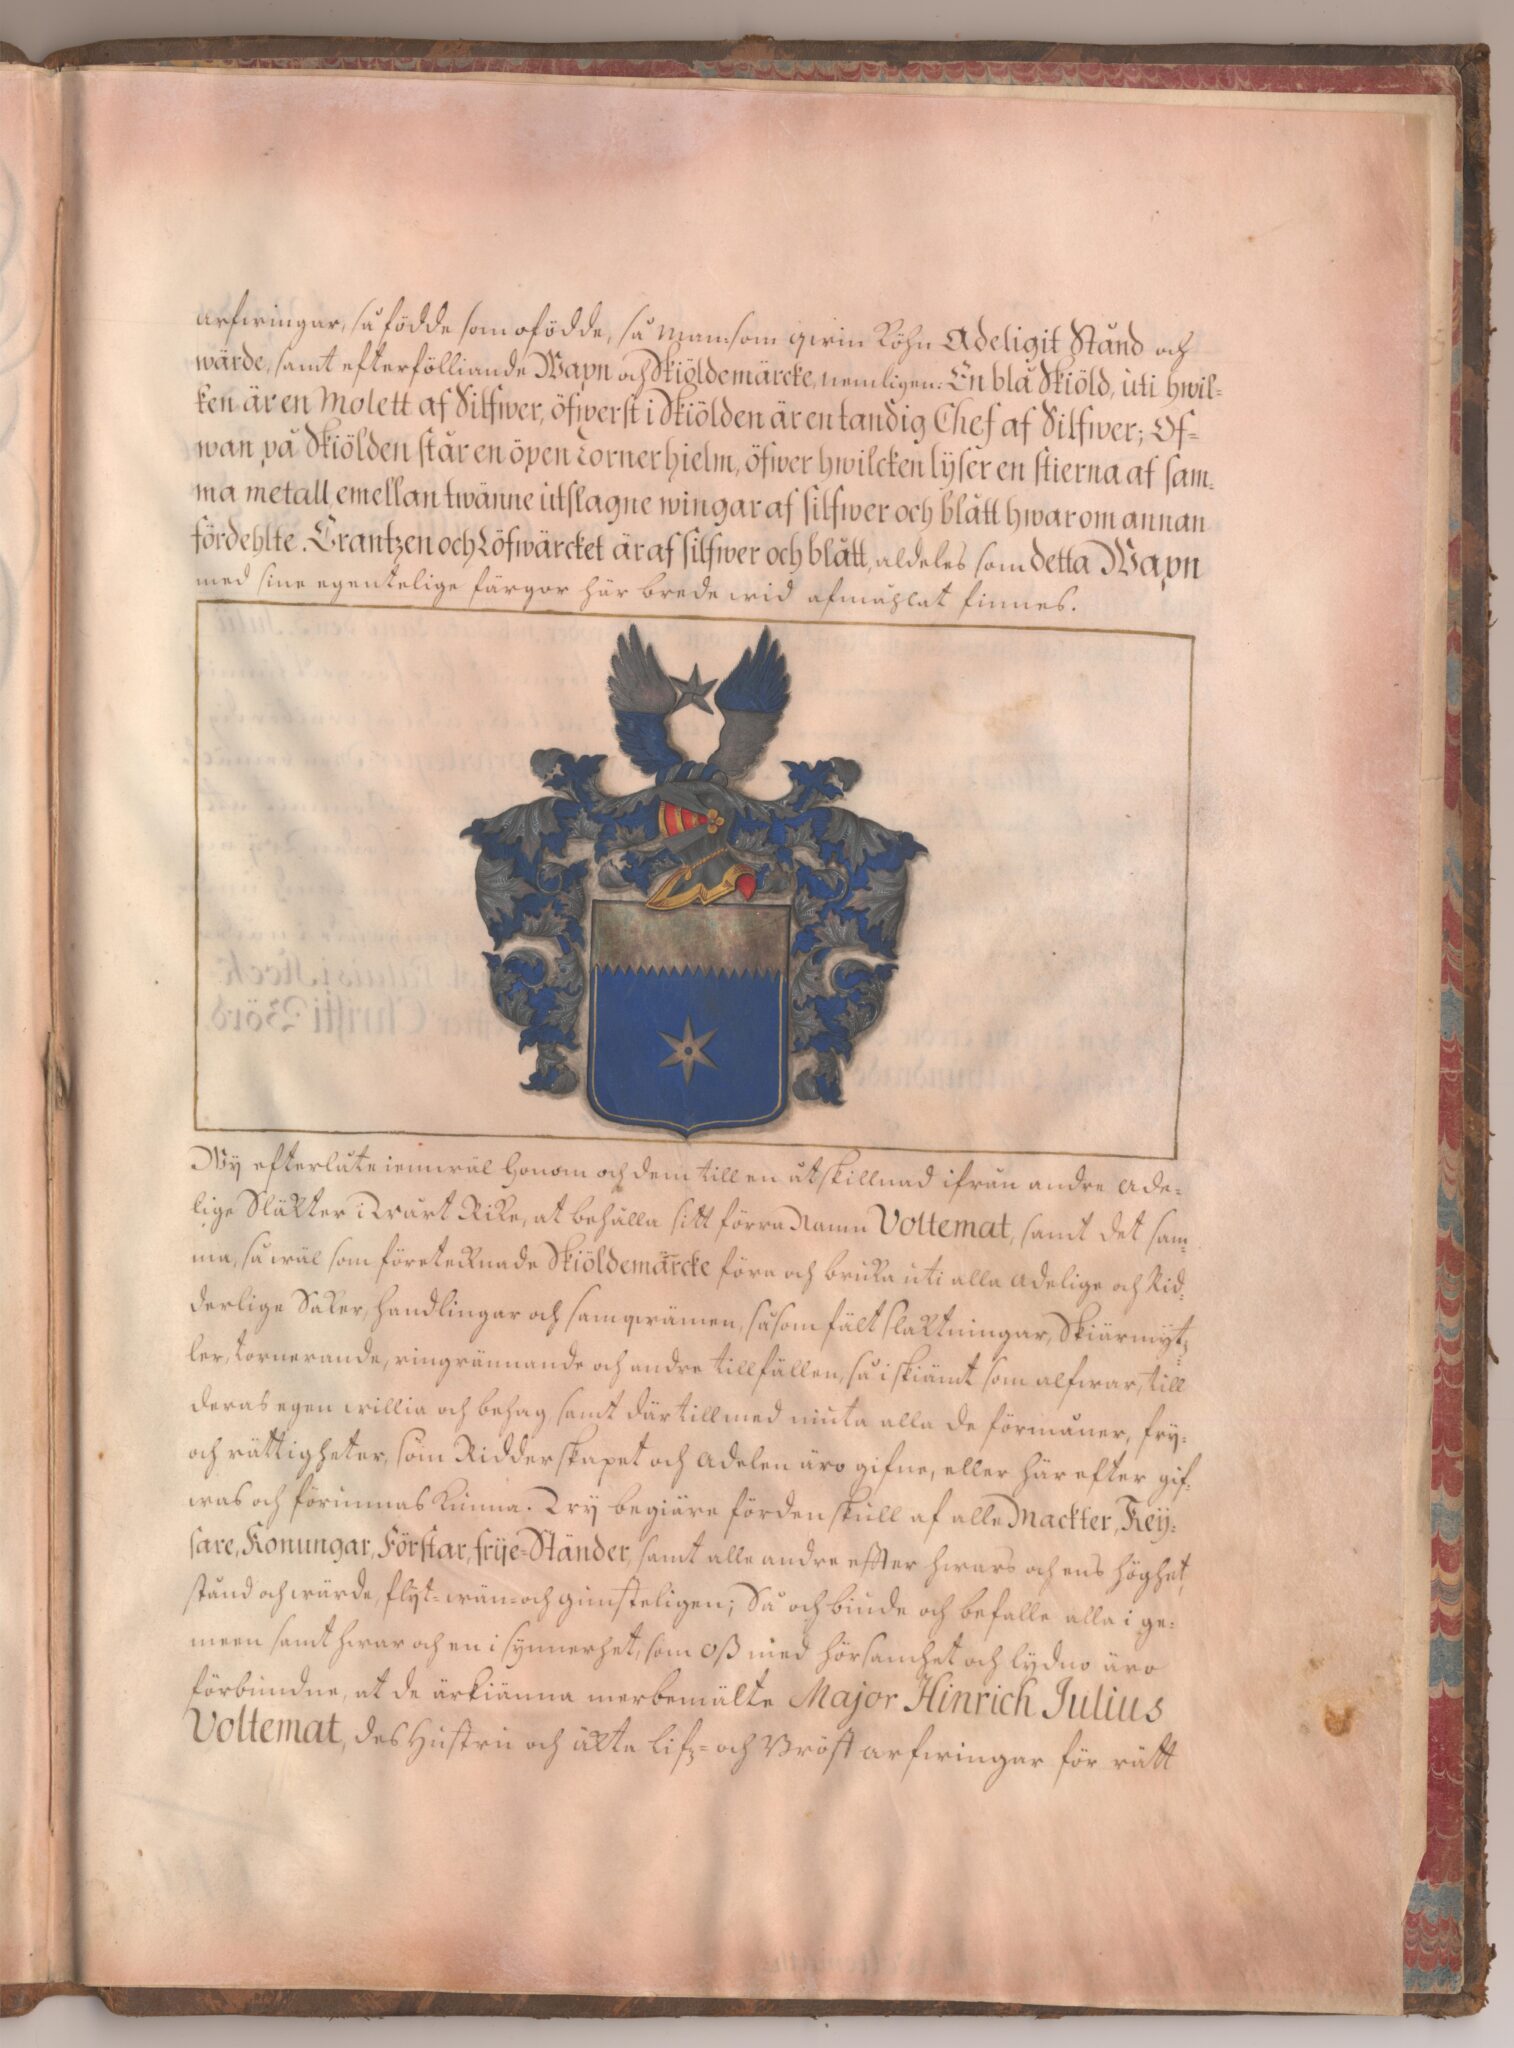 arfwingar, så födde som ofödde, så Man- som qwin Köhn Adeligit Stånd och
wärde, samt efterfölliande Wapn och Skiöldemärcke, nemligen: En blå Skiöld, uti hwil-
ken är en Molett af Silfwer, öfwerst i Skiölden är en tandig Chef af Silfwer; Of-
wan på Skiölden står en öpen Tornerhielm, öfwer hwilcken lyser en stierna af sam-
ma metall emellan twänne utslagne wingar af silfwer och blått hwarom annan
fördehlte. Crantzen och Löfwärcket är af silfwer och blått, aldeles som detta Wapn
med sine egentelige färgor här brede wid afmåhlat finnes.
Wy efterlåte jemwäl honom och dem till en åtskillnad ifrån andre Ade-
lige Släkter i Wårt Rike, at behålla sitt förra Namn Voltemat, samt det sam-
ma, så wäl som företeknade Skiöldemärcke föra och bruka uti alla Adelige och Rid-
derlige Saker, handlingar och samqwämen, såsom fält slaktningar, Skiärmytz-
ler, tornerande, ringrännande och andre tillfällen, så i skiämt som alfwar, till
deras egen willia och behag samt där till med niuta alla de förmåner, fry-
och rättigheter, som Ridderskapet och Adelen äro gifne, eller här efter gif-
was och förunnas kunna. Wy begiäre fördenskull af alle Mackter, Key-
sare, Konungar, Förstar, frije-Ständer, samt alle andre efter hwars och ens höghet,
stånd och wärde, flyt- wän- och gunsteligen; Så och biude och befalle alla i ge-
meen samt hwar och en i synnerhet, som Oß med hörsamhet och lydno äro
förbundne, at de ärkiänna merbemälte Major Hinrich Julius
Voltemat, des Hustru och äkta Lifz- och Bröst arfwingar för rätt